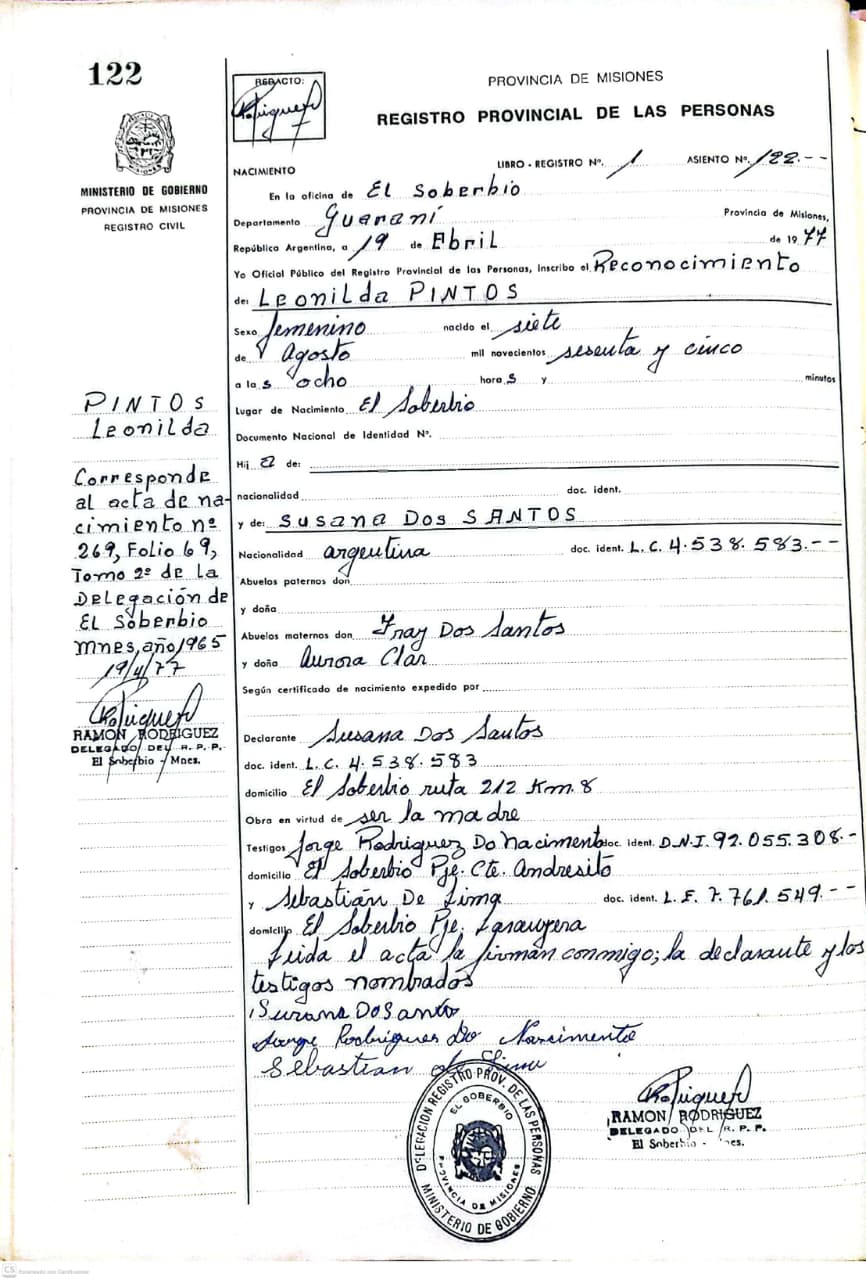 122
REDACTO:
PROVINCIA DE MISIONES
REGISTRO PROVINCIAL DE LAS PERSONAS
MINISTERIO DE GOBIERNO
PROVINCIA DE MISIONES
REGISTRO CIVIL
NACIMIENTO
LIBRO - REGISTRO Nº. 1 ASIENTO Nº. 122.--
En la oficina de El Soberbio
Departamento Guaraní Provincia de Misiones,
República Argentina, a 19 de Abril de 1977
Yo Oficial Público del Registro Provincial de las Personas, inscribo el Reconocimiento
de: Leonilda PINTOS
Sexo femenino nacido el siete
de Agosto mil novecientos sesenta y cinco
a las ocho horas y minutos
Lugar de Nacimiento El Soberbio
Documento Nacional de Identidad Nº.
Hija de:
nacionalidad doc. ident.
y de: Susana Dos SANTOS
Nacionalidad argentina doc. ident. L.C. 4.538.583.--
Abuelos paternos don
y doña
Abuelos maternos don Fray Dos Santos
y doña Aurora Clar
Según certificado de nacimiento expedido por
Declarante Susana Dos Santos
doc. ident. L.C. 4.538.583
domicilio El Soberbio ruta 212 Km. 8
Obra en virtud de ser la madre
Testigos Jorge Rodriguez Do Nacimento doc. ident. D.N.I. 92.055.308.-
domicilio El Soberbio Pje. Cte. Andresito
y Sebastián De Lima doc. ident. L.E. 7.761.549.--
domicilio El Soberbio Pje.
Leida el acta la firman conmigo; la declarante y los
testigos nombrados
Susana DoSantos
Jorge Rodrigues Do Nascimento
Sebastian de Lima
PINTOS
Leonilda
Corresponde
al acta de na-
cimiento nº
269, Folio 69,
Tomo 2º de la
Delegación de
El Soberbio
Mnes, año 1965
19/4/77
RAMON RODRIGUEZ
DELEGADO DEL R. P. P.
El Soberbio - Mnes.
RAMON RODRIGUEZ
DELEGADO DEL R. P. P.
El Soberbio - Mnes.
DELEGACIÓN REGISTRO PROV. DE LAS PERSONAS
EL SOBERBIO
PROVINCIA DE MISIONES
MINISTERIO DE GOBIERNO
CS Escaneado con CamScanner